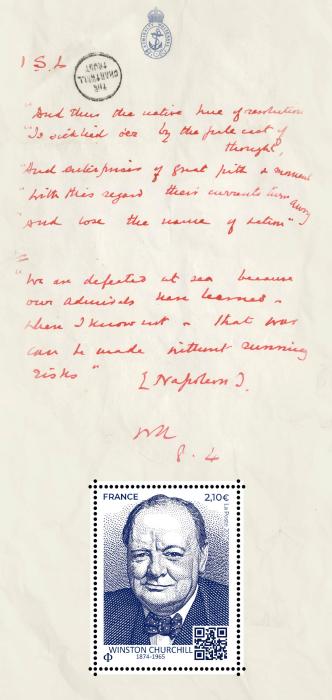 1 S.L
THE
CHARTWELL
TRUST
"And thus the native hue of resolution
"Is sicklied o'er by the pale cast of
thought,
"And enterprises of great pith & moment
"With this regard their currents turn away
"And lose the name of action"
"We are defeated at sea because
our admirals have learned -
where I know not - that war
can be made without running
risks" [Napoleon].
8.4
FRANCE 2,10€
La Poste
WINSTON CHURCHILL
1874-1965